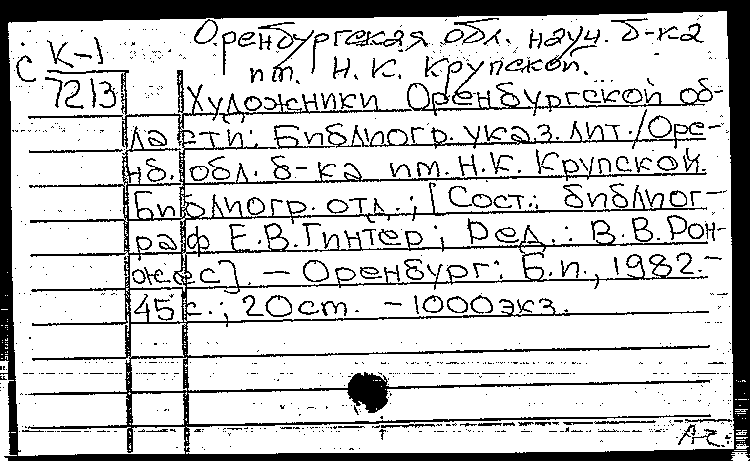 Оренбургская обл. науч. б-ка
им. Н.К. Крупской.
С К-1
7213
Художники Оренбургской об-
ласти: Библиогр. указ. лит./Оре-
нб. обл. б-ка им. Н.К. Крупской.
Библиогр. отд.; [Сост.: библиог-
раф Е.В. Гинтер; Ред.: В.В. Рон-
жес]. – Оренбург: Б.и., 1982.–
45с.; 20см. – 1000экз.